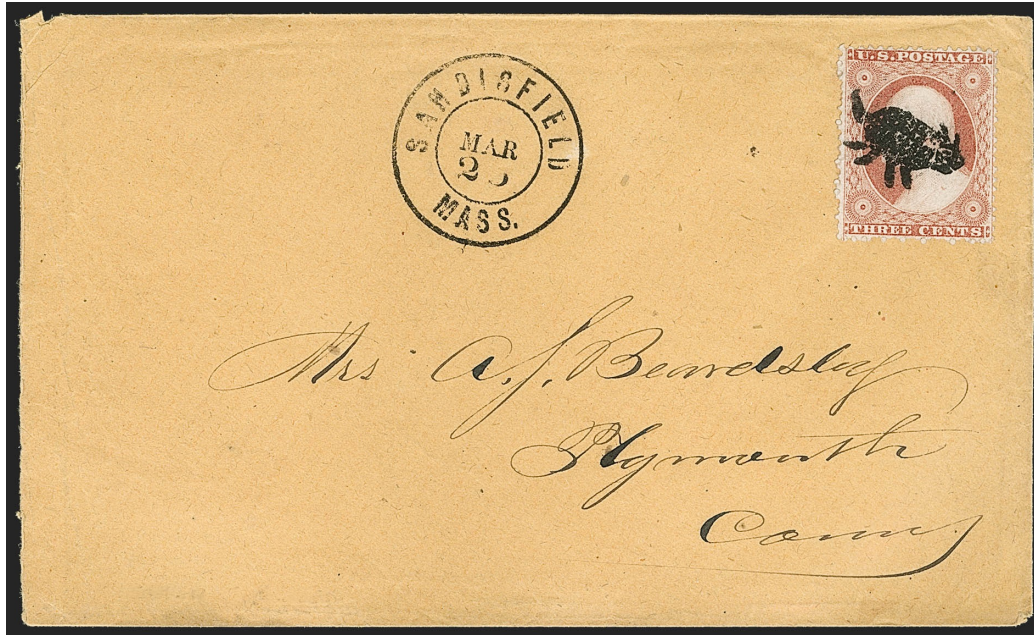 SANDISFIELD
MAR
MASS.
U.S. POSTAGE
THREE CENTS
Mrs A. J. Beardsley
Plymouth
Conn